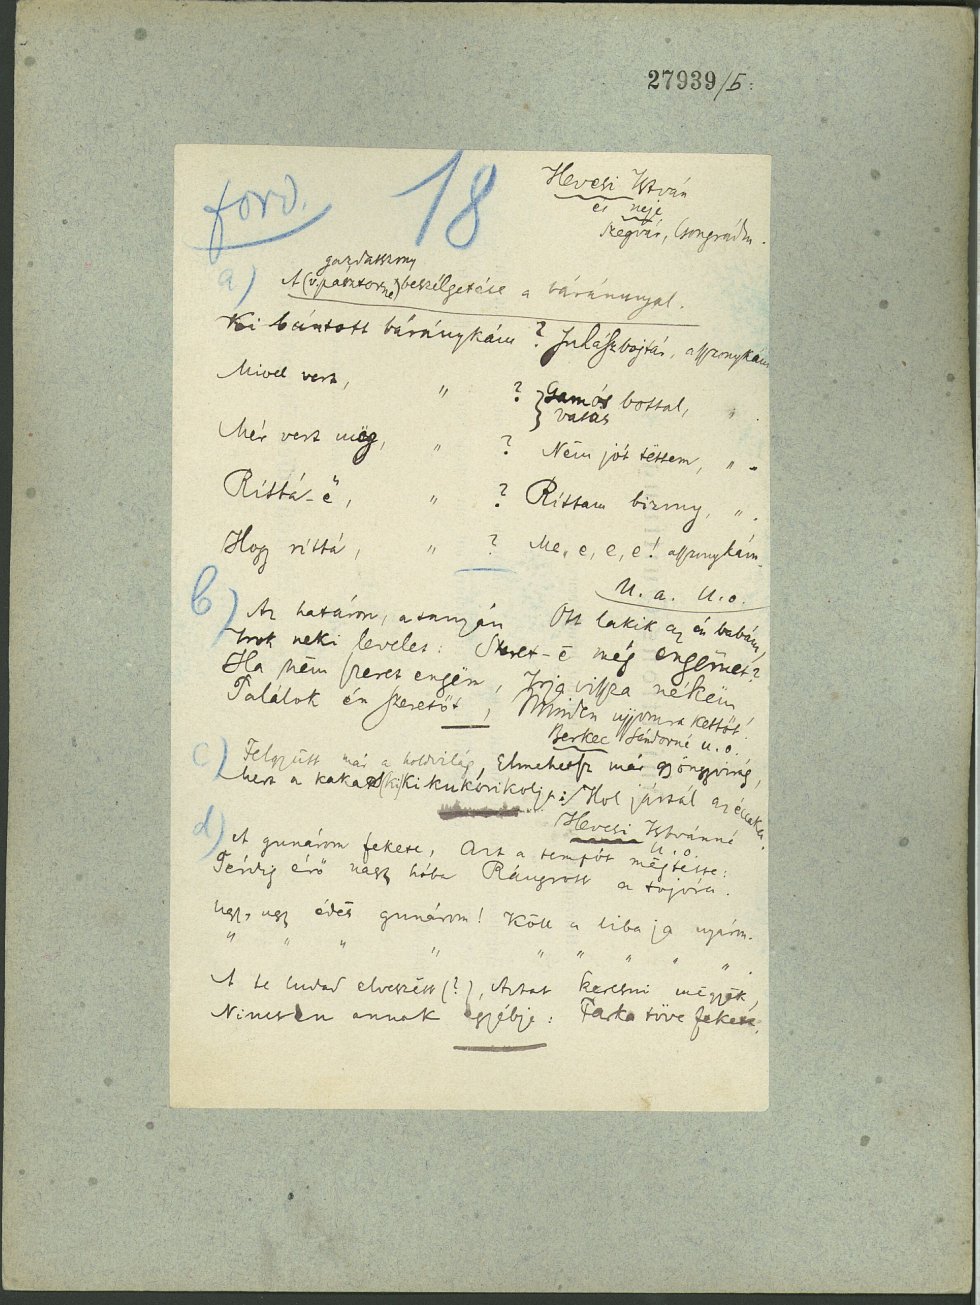 27939/5.
ford. 18
Hevesi István
és neje
Szegvár, Csongrádm.
a) gazdasszony
A (v. pásztorné) beszélgetése a báránnyal.
Ki bántott báránykám? Juhászbojtár, asszonykám
Mivel vert, " ? Gamós bottal, " .
vasas
Mér vert mëg, " ? Nëm jót tëttem, " .
Rittá-ë, " ? Rittam bizony, " .
Hogy rittá, " ? Me, e, e, e! asszonykám.
U. a. U. o.
b) Az határon, a tanyán Ott lakik az én babám,
Irok neki levelet: Szeret-ë még engëmet?
Ha nëm szeret engëm, Irja vissza nékëm
Találok én szeretőt, Minden ujjomra kettőt!
Berkec Sándorné u. o.
c) Feljgyütt már a holdvilág, Elmehetsz már gyöngyvirág,
Mert a kakas (ki) kikukórikolja: Hol jártál az éccaka.
Hevesi Istvánné
U. o.
d) A gunárom fekete, Azt a tempót mëgtëtte:
Térdig érő nagy hóba Ráugrott a tojóra.
Ugy, ugy édës gunárom! Költ a liba ja nyáron.
" " " " " " " " " .
A te ludad elveszëtt (?), Aztat keresni mënjek,
Nincsen annak egyébje: Farka töve fekete.